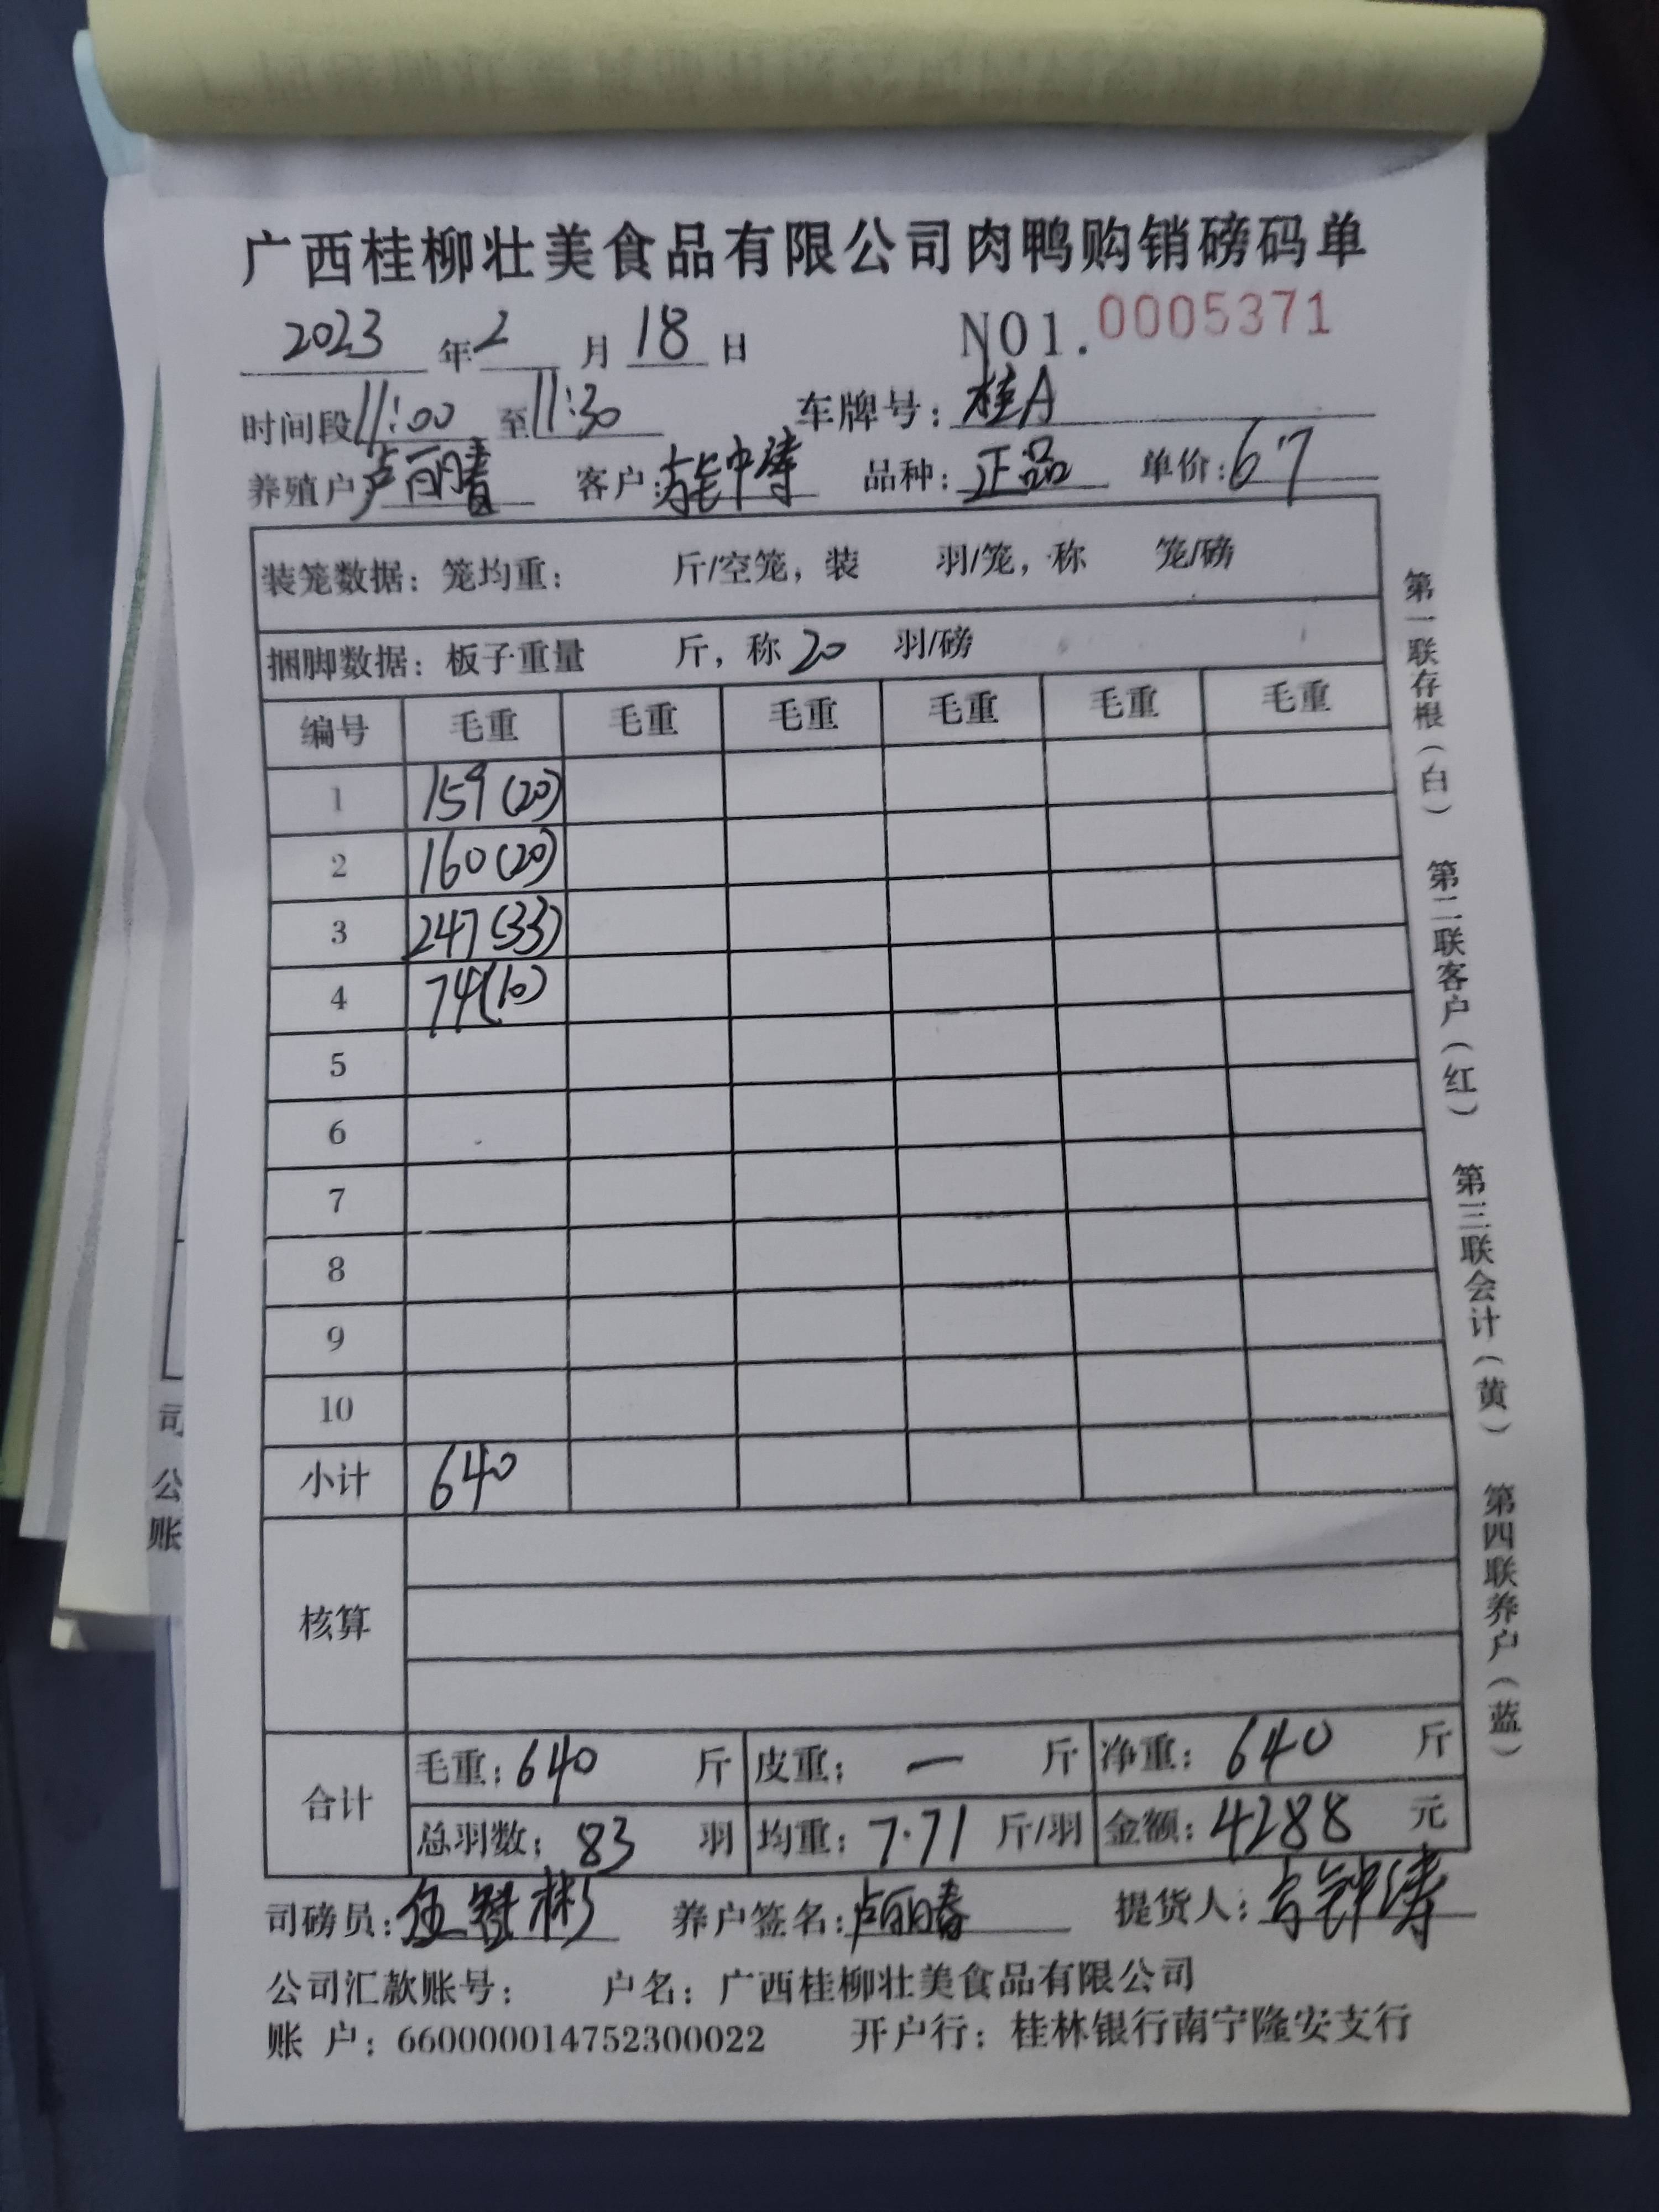 广西桂柳壮美食品有限公司肉鸭购销磅码单
2023 年 2 月 18 日 NO1.0005371
时间段 11:00 至 11:30 车牌号：桂A
养殖户：卢丽春 客户：钟涛 品种：正品 单价：6.7
装笼数据：笼均重： 斤/空笼，装 羽/笼，称 笼/磅
捆脚数据：板子重量 斤，称 20 羽/磅
编号 毛重 毛重 毛重 毛重 毛重 毛重
1 159(20)
2 160(20)
3 247(33)
4 74(10)
5
6
7
8
9
10
小计 640
核算
合计
毛重：640 斤 皮重：— 斤 净重：640 斤
总羽数：83 羽 均重：7.71 斤/羽 金额：4288 元
司磅员：伍 彬 养户签名：卢丽春 提货人：钟涛
公司汇款账号： 户名：广西桂柳壮美食品有限公司
账 户：660000014752300022 开户行：桂林银行南宁隆安支行
第一联存根（白） 第二联客户（红） 第三联会计（黄） 第四联养户（蓝）
司
公
账